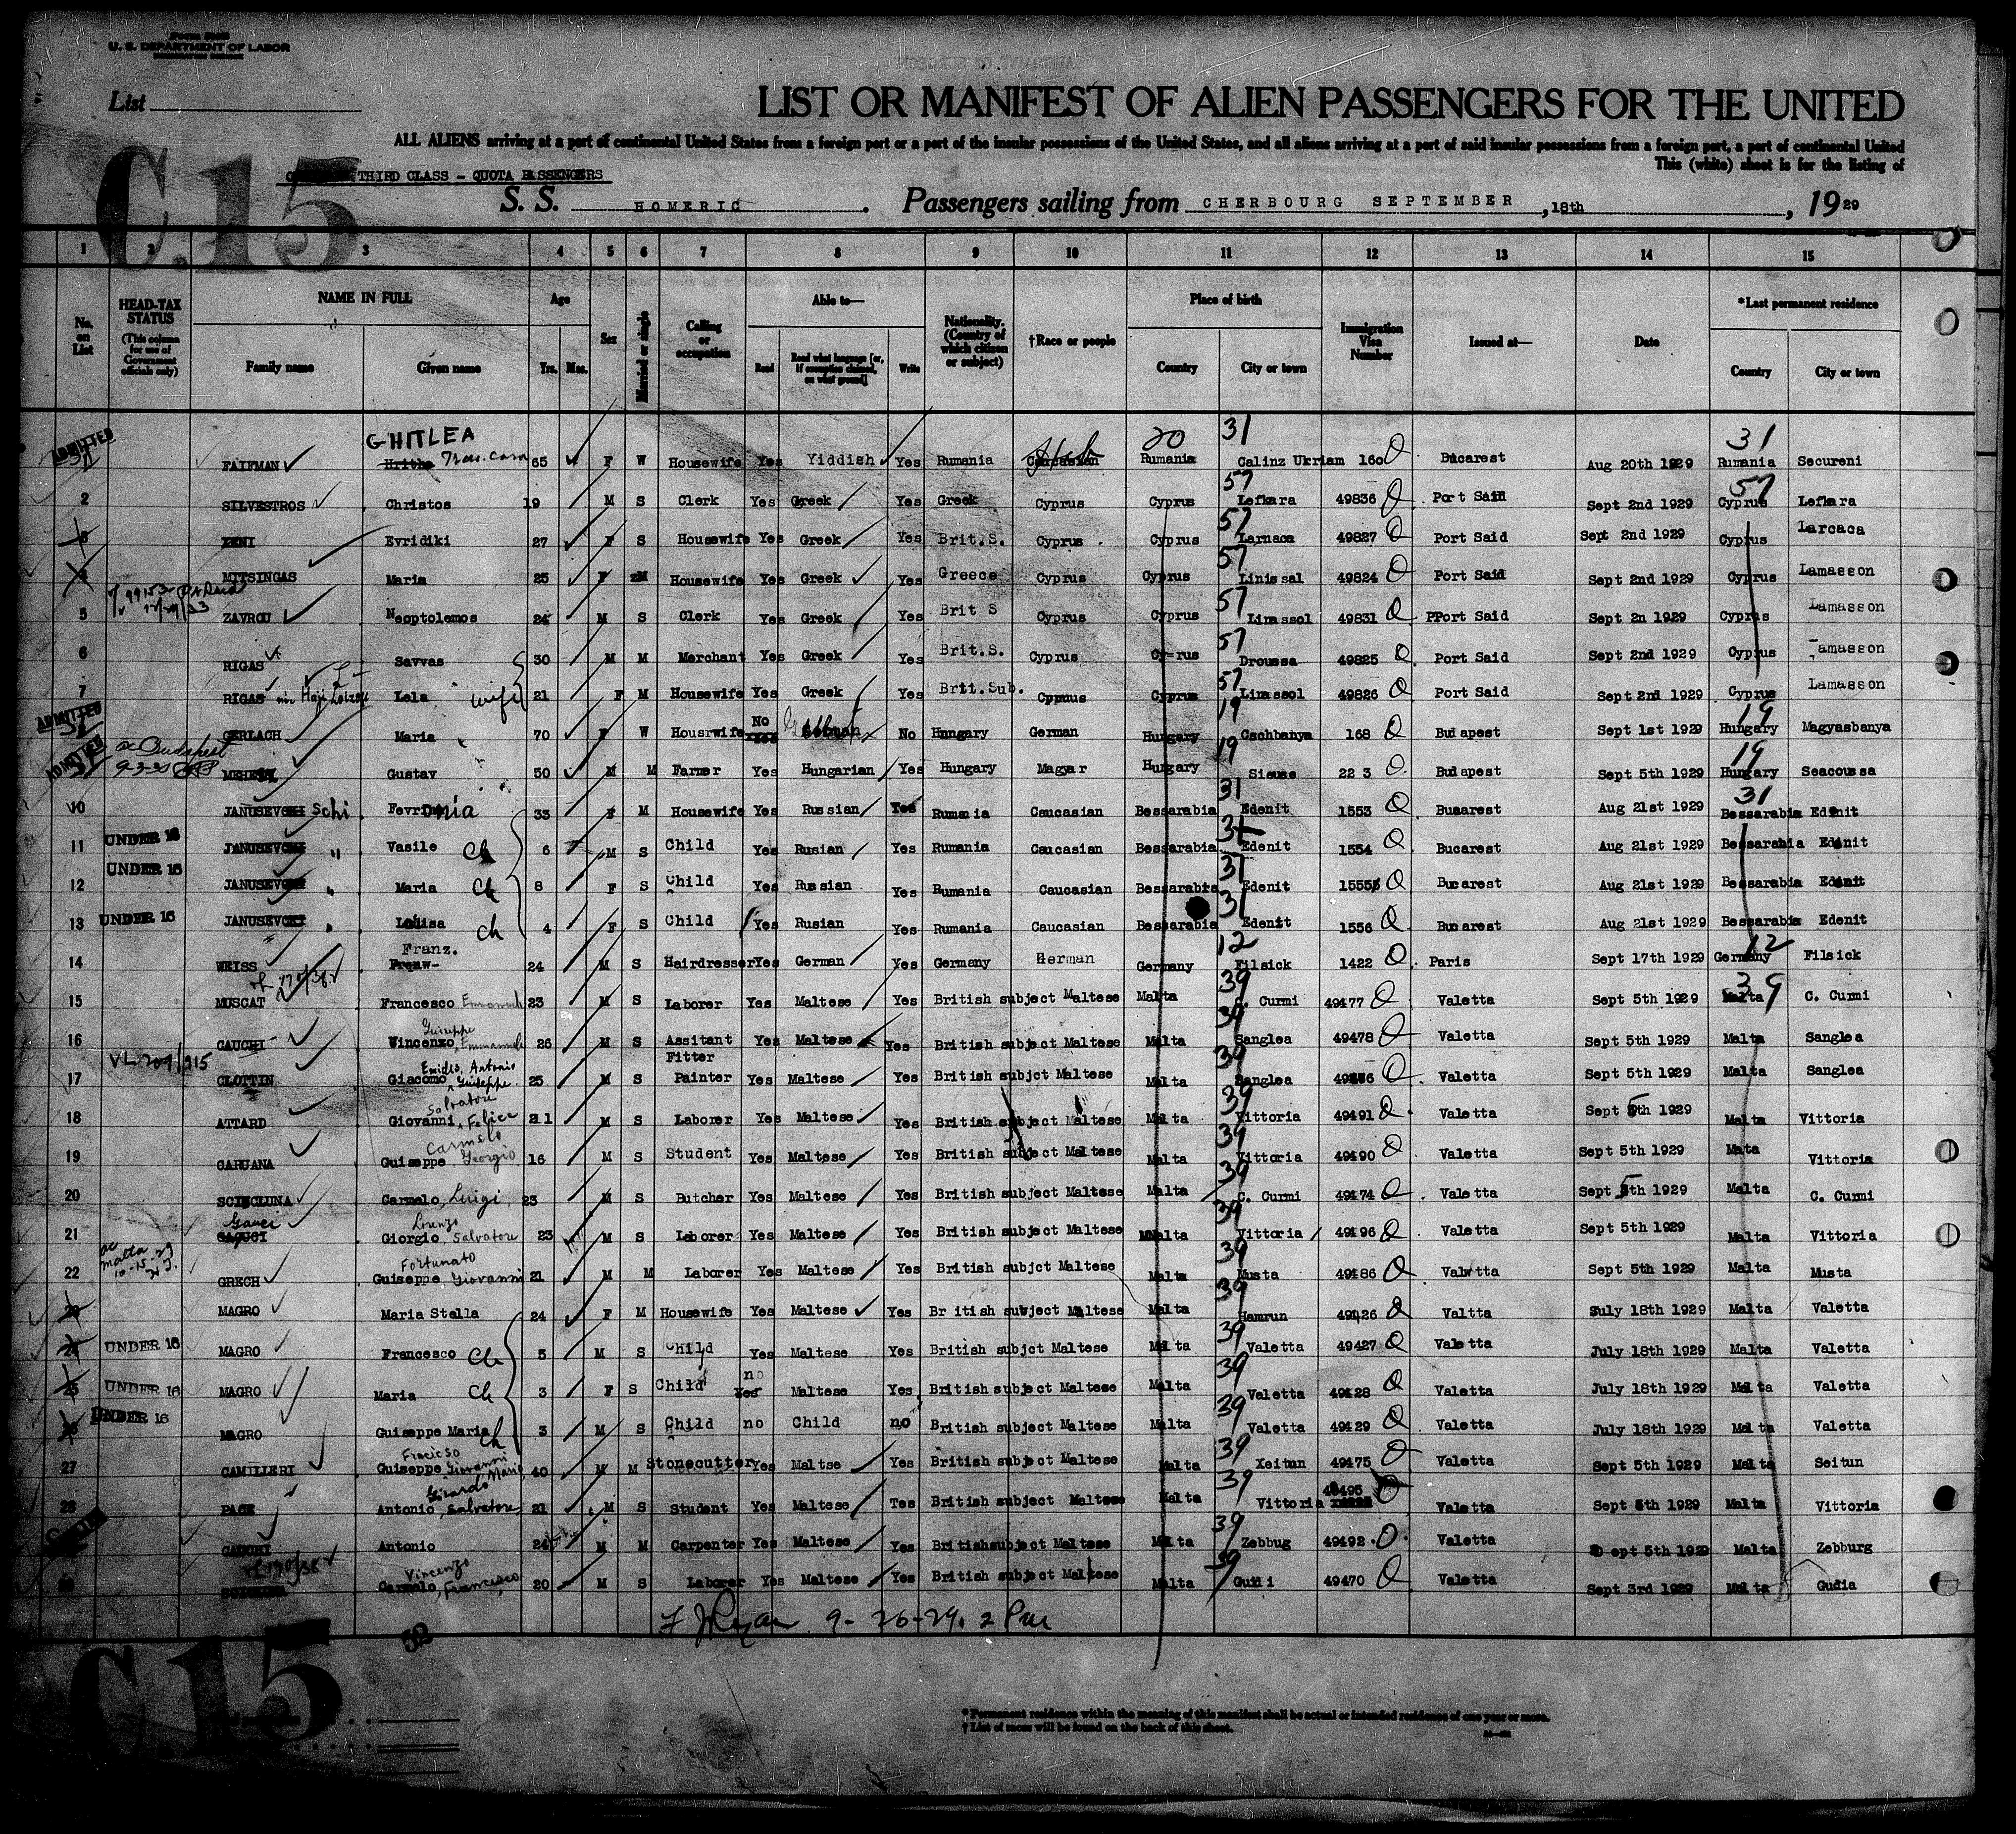 U. S. DEPARTMENT OF LABOR
List
LIST OR MANIFEST OF ALIEN PASSENGERS FOR THE UNITED
ALL ALIENS arriving at a port of continental United States from a foreign port or a port of the insular possessions of the United States, and all aliens arriving at a port of said insular possessions from a foreign port, a port of continental United
This (white) sheet is for the listing of
C.15
THIRD CLASS - QUOTA PASSENGERS
S. S. HOMERIC. Passengers sailing from CHERBOURG SEPTEMBER, 18th, 1929
1 2 3 4 5 6 7 8 9 10 11 12 13 14 15
No. on List HEAD-TAX STATUS (This column for use of Government officials only) NAME IN FULL Family name Given name Age Yrs. Mos. Sex Married or single Calling or occupation Able to— Read Read what language [or, if exemption claimed, on what ground] Write Nationality. (Country of which citizen or subject) †Race or people Place of birth Country City or town Immigration Visa Number Issued at— Date *Last permanent residence Country City or town
GHITLEA 20 31 31
ADMITTED FAIFMAN 65 F W Housewife Yes Yiddish Yes Rumania Rumania Calinz Ukriam 160 Bucarest Aug 20th 1929 Rumania Secureni
2 SILVESTROS Christos 19 M S Clerk Yes Greek Yes Greek Cyprus Cyprus 57 Lefkara 49836 Port Said Sept 2nd 1929 Cyprus 57 Lefkara
3 XENI Evridiki 27 F S Housewife Yes Greek Yes Brit.S. Cyprus Cyprus 57 Larnaca 49827 Port Said Sept 2nd 1929 Cyprus Larcaca
4 MITSINGAS Maria 25 F M Housewife Yes Greek Yes Greece Cyprus Cyprus 57 Linissal 49824 Port Said Sept 2nd 1929 Cyprus Lamasson
5 ZAVROU Neoptolemos 24 M S Clerk Yes Greek Yes Brit S Cyprus Cyprus 57 Limassol 49831 PPort Said Sept 2n 1929 Cyprus Lamasson
6 RIGAS Savvas 30 M M Merchant Yes Greek Yes Brit.S. Cyprus Cy-rus 57 Droussa 49825 Port Said Sept 2nd 1929 Cyprus Lamasson
7 RIGAS Lela wife 21 F M Housewife Yes Greek Yes Brit.Sub. Cyprus Cyprus 57 Limassol 49826 Port Said Sept 2nd 1929 Cyprus Lamasson
ADMITTED GERLACH Maria 70 F W Housrwife No No Hungary German Hungary 19 Cschbanya 168 Budapest Sept 1st 1929 Hungary 19 Magyasbanya
ADMITTED Gustav 50 M M Farmer Yes Hungarian Yes Hungary Magyar Hungary 19 22 3 Budapest Sept 5th 1929 Hungary 19 Seacoussa
10 JANUSEV schi Fevronia 33 F M Housewife Yes Russian Yes Rumania Caucasian Bessarabia 31 Edenit 1553 Bucarest Aug 21st 1929 Bessarabia 31 Edenit
11 UNDER 16 JANUSEV " Vasile Ch 6 M S Child Yes Rusian Yes Rumania Caucasian Bessarabia 31 Edenit 1554 Bucarest Aug 21st 1929 Bessarabia Edenit
12 UNDER 16 JANUSEV " Maria Ch 8 F S Child Yes Russian Yes Rumania Caucasian Bessarabia 31 Edenit 1555 Bucarest Aug 21st 1929 Bessarabia Edenit
13 UNDER 16 JANUSEV " Louisa Ch 4 F S Child Yes Rusian Yes Rumania Caucasian Bessarabia 31 Edenit 1556 Bucarest Aug 21st 1929 Bessarabia Edenit
14 WEISS Franz. 24 M S Hairdresser Yes German Yes Germany German Germany 12 Filsick 1422 Paris Sept 17th 1929 Germany 12 Filsick
15 MUSCAT Francesco Emanuele 23 M S Laborer Yes Maltese Yes British subject Maltese Malta 39 C. Curmi 49477 Valetta Sept 5th 1929 Malta 39 C. Curmi
16 CAUCHI Vincenzo, Giuseppe Emmanuele 26 M S Assitant Fitter Yes Maltese Yes British subject Maltese Malta 39 Sanglea 49478 Valetta Sept 5th 1929 Malta Sanglea
17 CLOTTIN Giacomo, Emidio, Antonio Giuseppe. 25 M S Painter Yes Maltese Yes British subjct Maltese Malta 39 Sanglea Valetta Sept 5th 1929 Malta Sanglea
18 ATTARD Giovanni Salvatore Felice 21 M S Laborer Yes Maltese Yes British subject Maltese Malta 39 Vittoria 49491 Valetta Sept 5th 1929 Malta Vittoria
19 CARUANA Guiseppe Carmelo Georgio 16 M S Student Yes Maltese Yes British subject Maltese Malta 39 Vittoria 49490 Valetta Sept 5th 1929 Mata Vittoria
20 SCIECLUNA Carmelo, Luigi, 23 M S Butcher Yes Maltese Yes British subject Maltese Malta 39 C. Curmi 49474 Valetta Sept 5th 1929 Malta C. Curmi
21 Gauci Giorgio, Lorenzo Salvatore 23 M S Laborer Yes Maltese Yes British subject Maltese Malta 39 Vittoria 49496 Valetta Sept 5th 1929 Malta Vittoria
22 GRECH Guiseppe Fortunato Giovanni 21 M M Laborer Yes Maltese Yes British subjct Maltese Malta 39 Musta 49486 Valwtta Sept 5th 1929 Malta Musta
23 MAGRO Maria Stella 24 F M Housewife Yes Maltese Yes British subject Maltese Malta 39 Hamrun 49426 Valtta July 18th 1929 Malta Valetta
24 UNDER 16 MAGRO Francesco Ch 5 M S Child Yes Maltese Yes British subjct Maltese Malta 39 Valetta 49427 Valetta July 18th 1929 Malta Valetta
25 UNDER 16 MAGRO Maria Ch 3 F S Child no Yes Maltese Yes British subject Maltese Malta 39 Valetta 49428 Valetta July 18th 1929 Malta Valetta
26 UNDER 16 MAGRO Guiseppe Maria Ch 3 M S Child no Child no British subject Maltese Malta 39 Valetta 49429 Valetta July 18th 1929 Malta Valetta
27 CAMILLERI Guiseppe Giovanni Maria 40 M M Stonecutter Yes Maltse Yes British subject Maltese Malta 39 Xeitun 49475 Valetta Sept 5th 1929 Malta Seitun
28 PACE Antonio, Girardo Salvatore 21 M S Student Yes Maltese Tes British subject Maltese Malta 39 Vittoria 49495 Valetta Sept 5th 1929 Malta Vittoria
Antonio 24 M M Carpenter Yes Maltese Yes Britishsubject Maltese Malta 39 Zebbug 49492 Valetta Sept 5th 1929 Malta Zebburg
Carmelo, Vincenzo Francesco 20 M S Laborer Yes Maltese Yes British subject Maltese Malta 39 Gudi i 49470 Valetta Sept 3rd 1929 Malta Gudia
9-26-29. 2 PM
C.15
* Permanent residence within the meaning of this manifest shall be actual or intended residence of one year or more.
† List of races will be found on the back of this sheet.